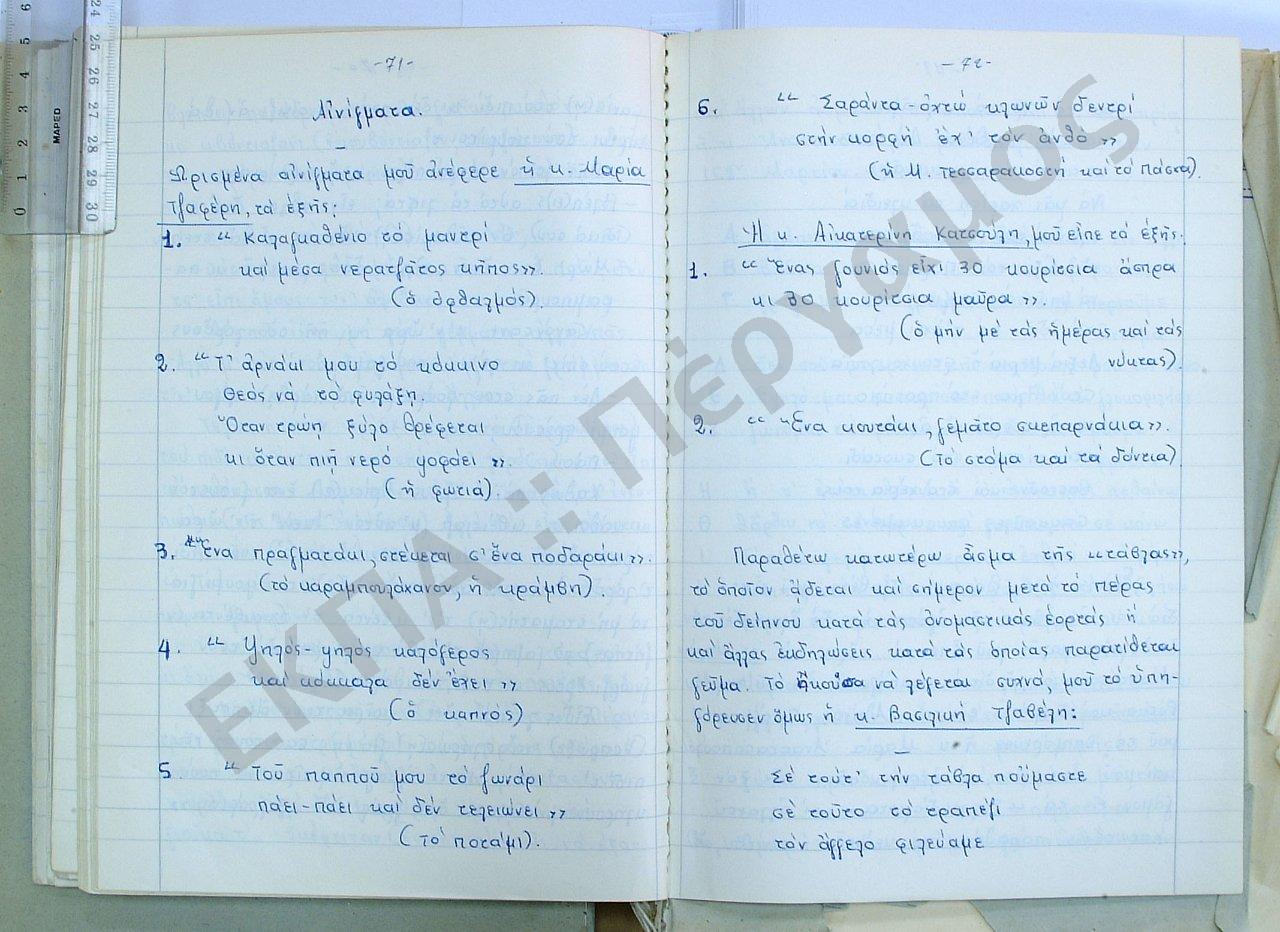 -71-
Αἰνίγματα.
Ὡρισμένα αἰνίγματα μοῦ ἀνέφερε ἡ κ. Μαρία
Τζαφέρη, τά ἑξῆς:
1. “ Καλαμαθένιο τό μαντρί
καί μέσα νερατζᾶτος κῆπος».
(ὁ ὀφθαλμός)
2. “ Τ' ἀρνάκι μου τό κόκκινο
Θεός νά τό φυλάξῃ.
Ὅταν τρώῃ ξύλο θρέφεται
κι ὅταν πιῇ νερό ψοφάει ».
(ἡ φωτιά).
3. “Ἕνα πραγματάκι, στέκεται σ' ἕνα ποδαράκι».
(τό καραμπουλάχανον, ἡ κράμβη)
4. “ Ψηλός-ψηλός καλόγερος
καί κόκκαλα δέν ἔχει »
(ὁ καπνός)
5 “ Τοῦ παπποῦ μου τό ζωνάρι
πάει-πάει καί δέν τελειώνει »
(τό ποτάμι).
-72-
6. “ Σαράντα-ὀχτώ κλωνῶν δεντρί
στήν κορφή ἔχ' τόν ἀνθό »
(ἡ Μ. Τεσσαρακοστή καί τό Πάσχα).
Ἡ κ. Αἰκατερίνη Κατσούλη, μοῦ εἶπε τά ἑξῆς:
1. “ Ἕνας γουνιός εἶχι 30 κουρίτσια ἄσπρα
κι 30 κουρίτσια μαῦρα ».
(ὁ μήν μέ τάς ἡμέρας καί τάς
νύκτας)
2. “ Ἕνα κουτάκι, γεμάτο σκεπαρνάκια».
(Τό στόμα καί τά δόντια)
Παραθέτω κατωτέρω ἆσμα τῆς «τάβλας»,
τό ὁποῖον ᾄδεται καί σήμερον μετά τό πέρας
τοῦ δείπνου κατά τάς ὀνομαστικάς ἑορτάς ἤ
καί ἄλλας ἐκδηλώσεις κατά τάς ὁποίας παρατίθεται
γεῦμα. Τό ἤκουσα νά λέγεται συχνά, μοῦ τό ὑπη-
γόρευσεν ὅμως ἡ κ. Βασιλική Τζαβέλη:
Σέ τούτ' τήν τάβλα ποὔμαστε
σέ τοῦτο τό τραπέζι
τόν ἄγγελο φιλεύαμε
ΕΚΠΑ :: Πέργαμος
MAPED
0 1 2 3 4 5 6
24 25 26 27 28 29 30